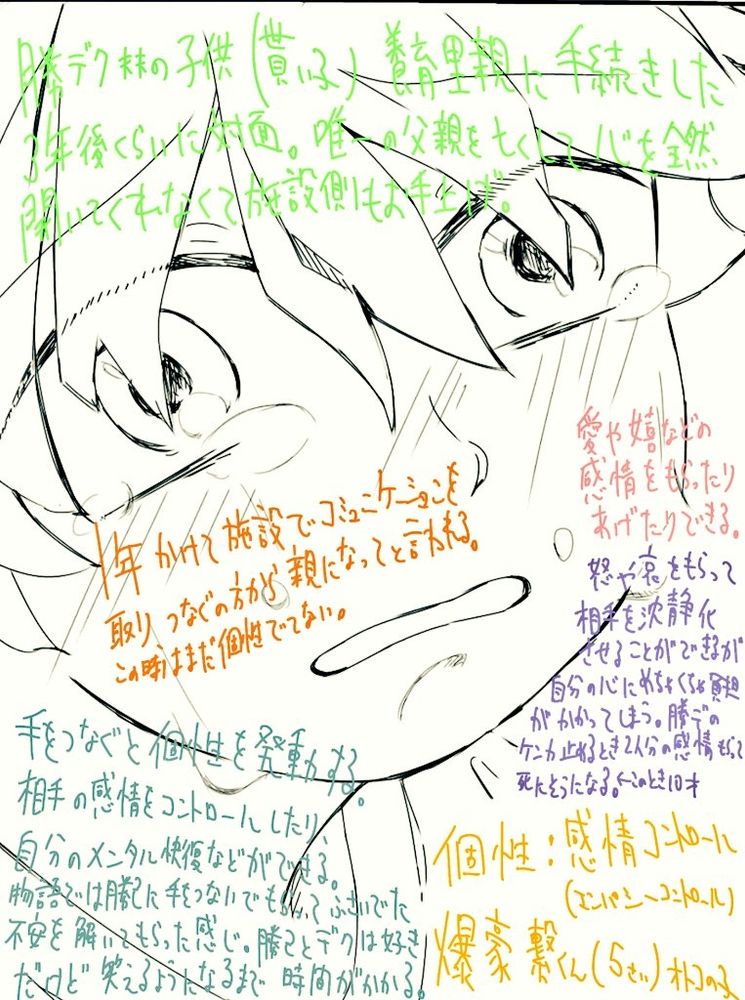 勝デク林の子供(貰い子) 養育里親に手続きした
3年後くらいに対面。唯一の父親を亡くして心を全然
開いてくれなくて施設側もお手上げ。
愛や嬉などの
感情をもらったり
あげたりできる。
1年かけて施設でコミュニケーションを
取りつなぐの方から親になってと言われる。
この時はまだ個性でてない。
怒や哀をもらって
相手を沈静化
させることができるが
自分の心にめちゃくちゃ負担
がかかってしまう。勝デの
ケンカ止めるとき2人分の感情もらって
死にそうになる。←このとき10才
手をつなぐと個性を発動する。
相手の感情をコントロールしたり、
自分のメンタル快復などができる。
物語では勝己に手をつないでもらってふさいでた
不安を解いてもらった感じ。勝己とデクは好き
だけど笑えるようになるまで時間がかかる。
個性:感情コントロール
(エンパシーコントロール)
爆豪繋くん(5さい)オトコのコ